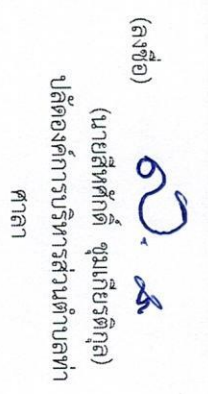 (ลงชื่อ)
(นายสีหศักดิ์ ชุมเกียรติกุล)
ปลัดองค์การบริหารส่วนตำบลท่า
ศาลา